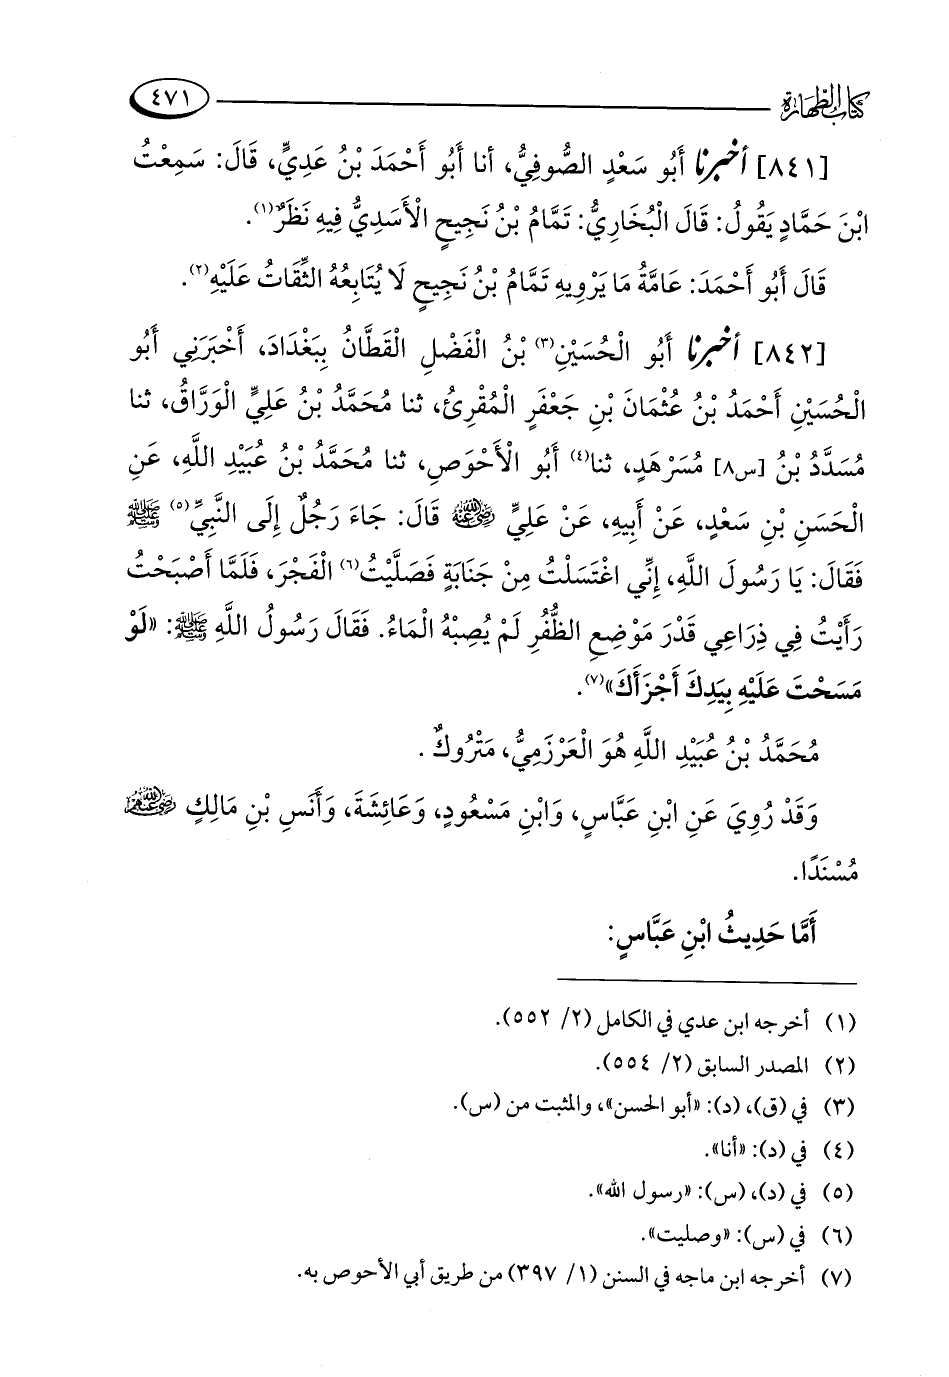 كتاب الطهارة ٤٧١
[٨٤١] أخبرنا أَبُو سَعْدٍ الصُّوفِيُّ، أنا أَبُو أَحْمَدَ بْنُ عَدِيٍّ، قَالَ: سَمِعْتُ
ابْنَ حَمَّادٍ يَقُولُ: قَالَ الْبُخَارِيُّ: تَمَّامُ بْنُ نَجِيحٍ الْأَسَدِيُّ فِيهِ نَظَرٌ(١).
قَالَ أَبُو أَحْمَدَ: عَامَّةُ مَا يَرْوِيهِ تَمَّامُ بْنُ نَجِيحٍ لَا يُتَابِعُهُ الثِّقَاتُ عَلَيْهِ(٢).
[٨٤٢] أخبرنا أَبُو الْحُسَيْنِ(٣) بْنُ الْفَضْلِ الْقَطَّانُ بِبَغْدَادَ، أَخْبَرَنِي أَبُو
الْحُسَيْنِ أَحْمَدُ بْنُ عُثْمَانَ بْنِ جَعْفَرٍ الْمُقْرِئُ، ثنا مُحَمَّدُ بْنُ عَلِيٍّ الْوَرَّاقُ، ثنا
مُسَدَّدُ بْنُ [س٨] مُسَرْهَدٍ، ثنا(٤) أَبُو الْأَحْوَصِ، ثنا مُحَمَّدُ بْنُ عُبَيْدِ اللَّهِ، عَنِ
الْحَسَنِ بْنِ سَعْدٍ، عَنْ أَبِيهِ، عَنْ عَلِيٍّ رضي الله عنه قَالَ: جَاءَ رَجُلٌ إِلَى النَّبِيِّ(٥) ﷺ
فَقَالَ: يَا رَسُولَ اللَّهِ، إِنِّي اغْتَسَلْتُ مِنْ جَنَابَةٍ فَصَلَّيْتُ(٦) الْفَجْرَ، فَلَمَّا أَصْبَحْتُ
رَأَيْتُ فِي ذِرَاعِي قَدْرَ مَوْضِعِ الظُّفُرِ لَمْ يُصِبْهُ الْمَاءُ. فَقَالَ رَسُولُ اللَّهِ ﷺ: «لَوْ
مَسَحْتَ عَلَيْهِ بِيَدِكَ أَجْزَأَكَ»(٧).
مُحَمَّدُ بْنُ عُبَيْدِ اللَّهِ هُوَ الْعَرْزَمِيُّ، مَتْرُوكٌ .
وَقَدْ رُوِيَ عَنِ ابْنِ عَبَّاسٍ، وَابْنِ مَسْعُودٍ، وَعَائِشَةَ، وَأَنَسِ بْنِ مَالِكٍ رضي الله عنهم
مُسْنَدًا.
أَمَّا حَدِيثُ ابْنِ عَبَّاسٍ:
(١) أخرجه ابن عدي في الكامل (٢/ ٥٥٢).
(٢) المصدر السابق (٢/ ٥٥٤).
(٣) في (ق)، (د): «أبو الحسن»، والمثبت من (س).
(٤) في (د): «أنا».
(٥) في (د)، (س): «رسول الله».
(٦) في (س): «وصليت».
(٧) أخرجه ابن ماجه في السنن (١/ ٣٩٧) من طريق أبي الأحوص به.